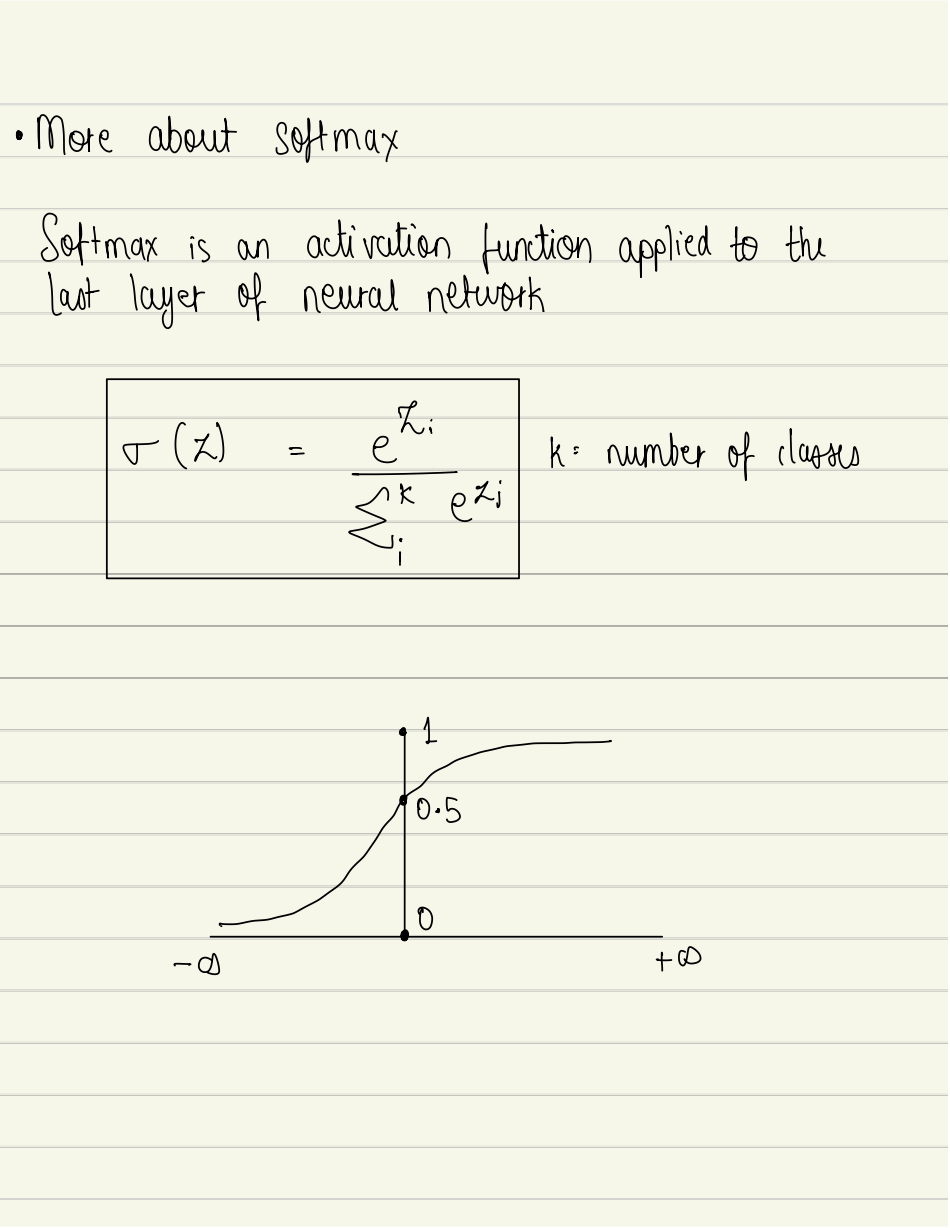 • More about softmax
Softmax is an activation function applied to the
last layer of neural network
σ(z) = e^{z_i} / Σ_i^k e^{z_j}
k = number of classes
1
0.5
0
-∞
+∞